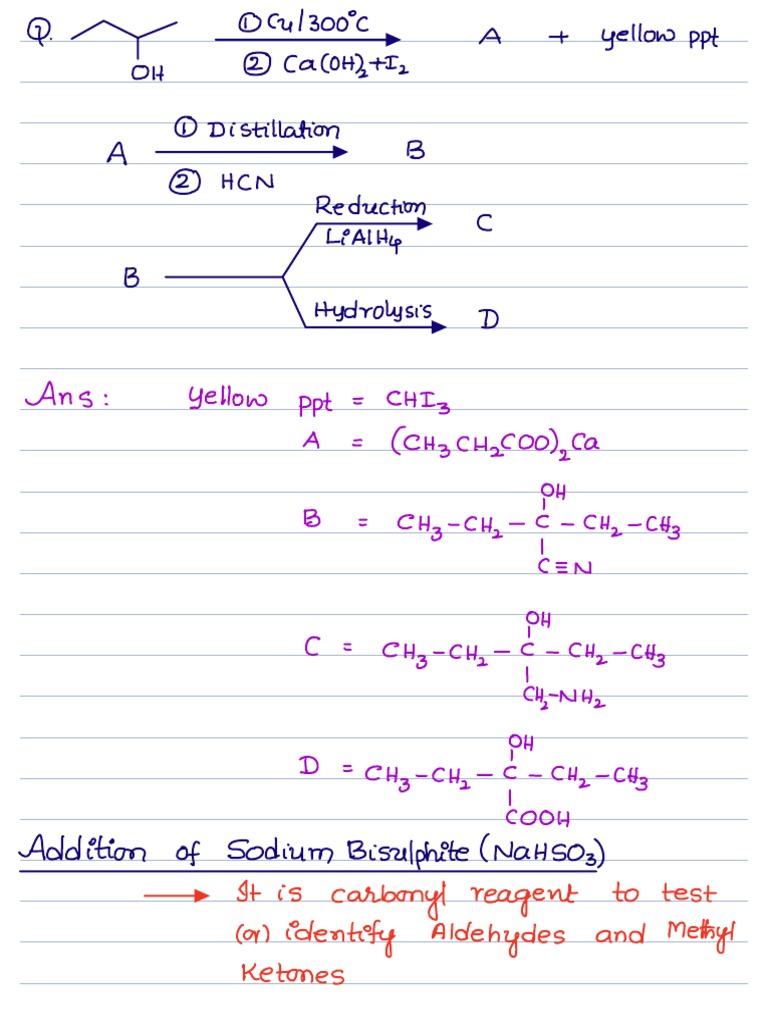 Q. OH ① Cu/300°C ② Ca(OH)₂+I₂ A + yellow ppt
A ① Distillation ② HCN B
Reduction
LiAlH₄ C
B
Hydrolysis D
Ans: yellow ppt = CHI₃
A = (CH₃CH₂COO)₂Ca
OH
B = CH₃-CH₂-C-CH₂-CH₃
C≡N
OH
C = CH₃-CH₂-C-CH₂-CH₃
CH₂-NH₂
OH
D = CH₃-CH₂-C-CH₂-CH₃
COOH
Addition of Sodium Bisulphite (NaHSO₃)
→ It is carbonyl reagent to test
(or) identify Aldehydes and Methyl
Ketones